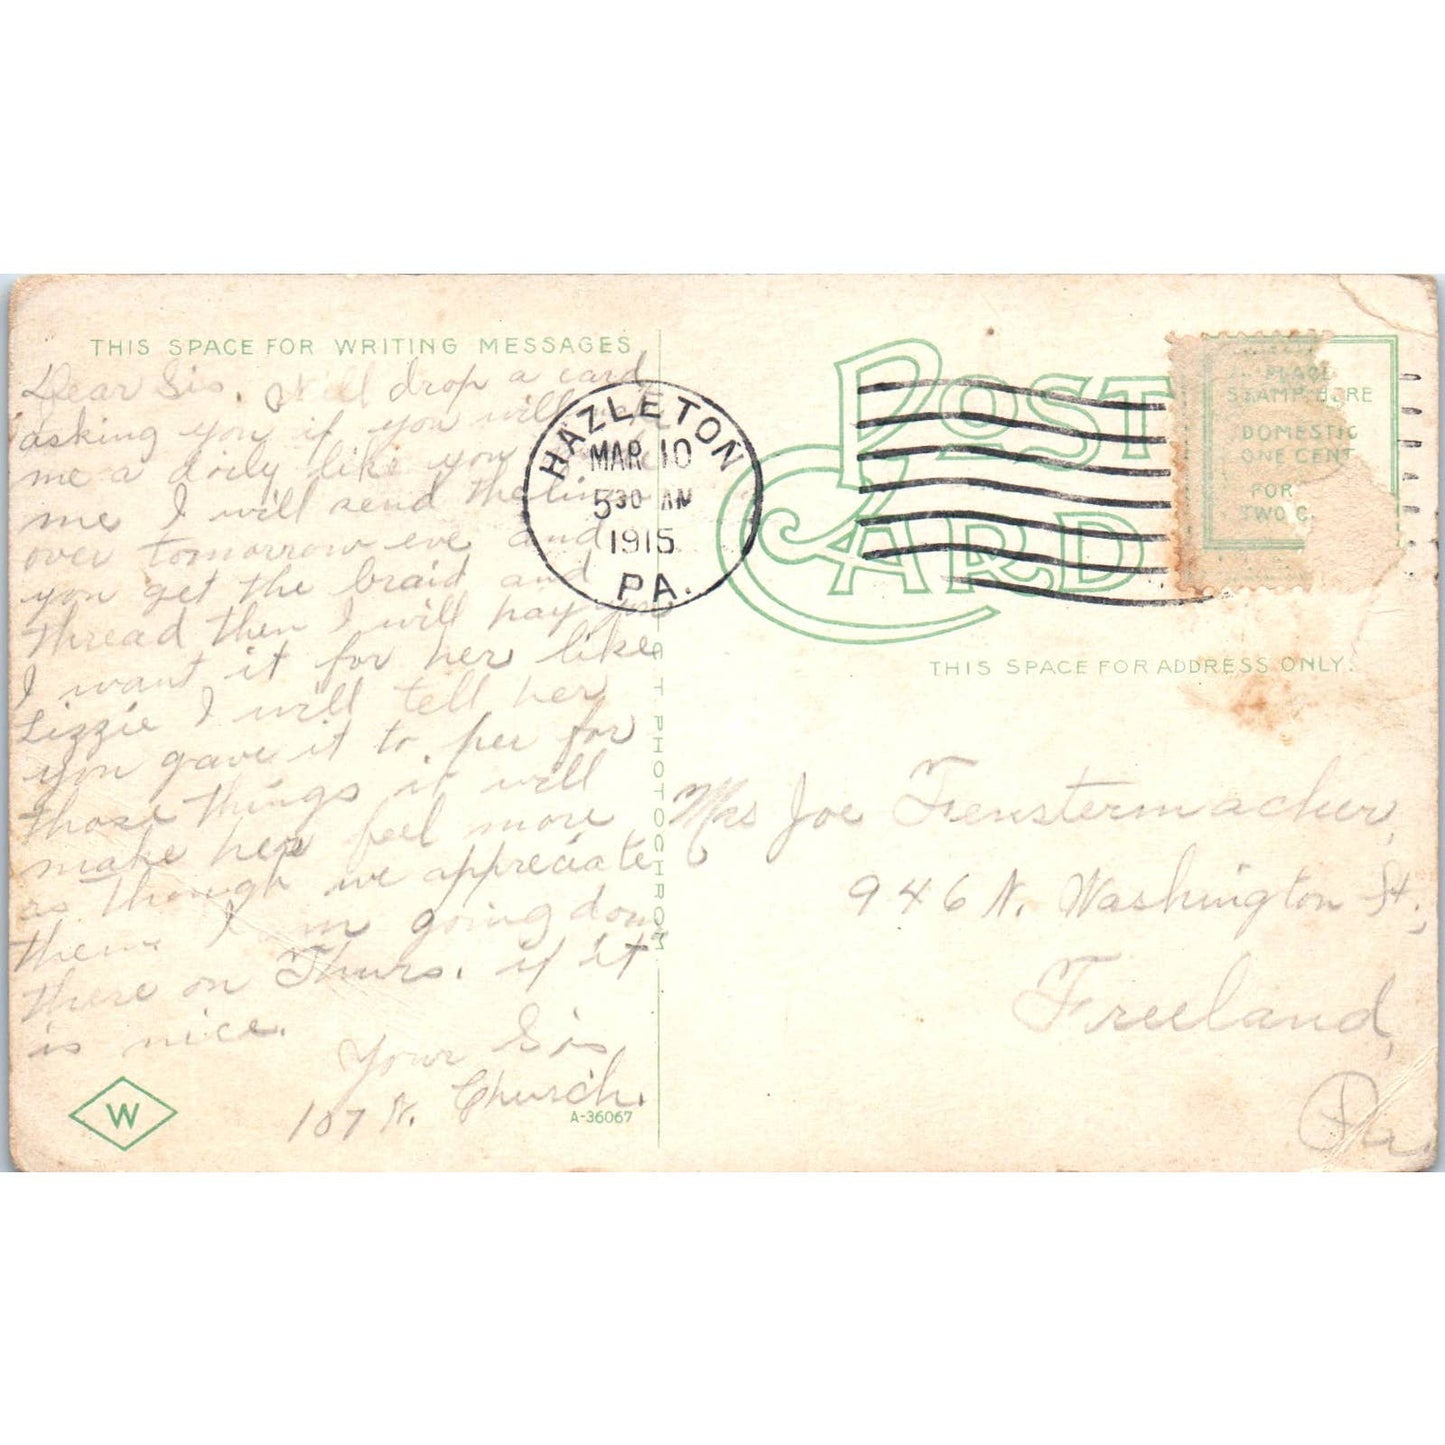 THIS SPACE FOR WRITING MESSAGES
Dear Sis. Will drop a card
asking you if you will
me a doily like you
me I will send the
over tomorrow eve and
you get the braid and
thread then I will pay you
I want it for her like
Lizzie I will tell her
you gave it to her for
those things it will
make her feel more
as though we appreciate
them. I am going down
there on Thurs. if it
is nice.
Your Sis,
107 N. Church.
W
A-36067
C T PHOTOCHROM
HAZLETON
MAR 10
5 30 AM
1915
PA.
POST CARD
PLACE
STAMP HERE
DOMESTIC
ONE CENT
FOR
TWO C.
THIS SPACE FOR ADDRESS ONLY.
Mrs Joe Fenstermacher,
946 N. Washington St.,
Freeland,
Pa.